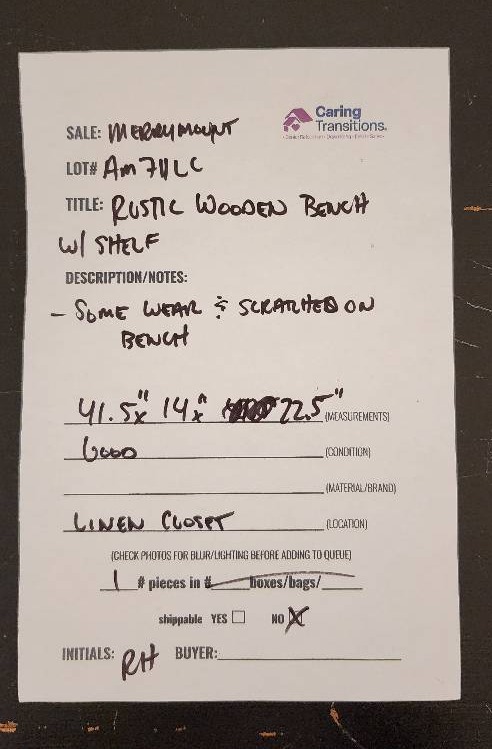 Caring
Transitions.
SALE: MERRYMOUNT
LOT# Am711LC
TITLE: RUSTIC WOODEN BENCH
W/ SHELF
DESCRIPTION/NOTES:
- SOME WEAR & SCRATCHED ON
BENCH
41.5" x 14" x 22.5" (MEASUREMENTS)
GOOD (CONDITION)
(MATERIAL/BRAND)
LINEN CLOSET (LOCATION)
(CHECK PHOTOS FOR BLUR/LIGHTING BEFORE ADDING TO QUEUE)
1 # pieces in # boxes/bags/
shippable YES NO X
INITIALS: RH BUYER: